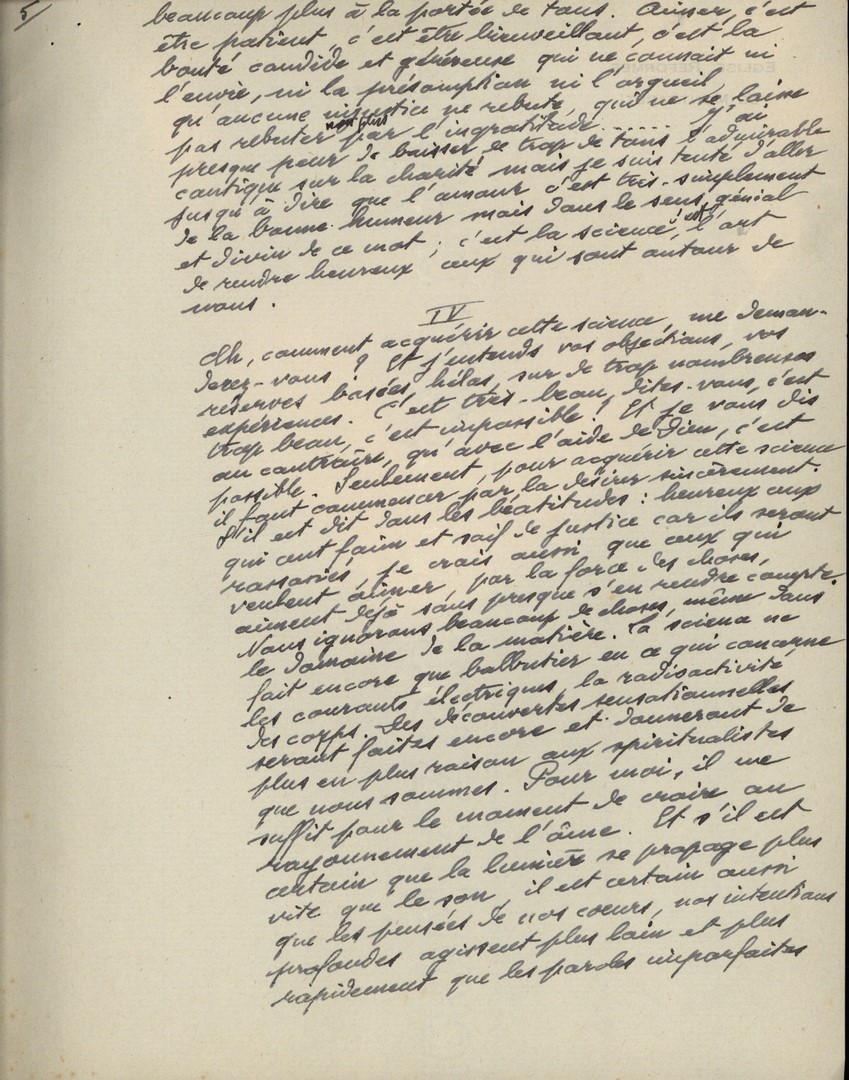 5/
beaucoup plus à la portée de tous. Aimer, c'est
être patient, c'est être bienveillant, c'est la
bonté candide et généreuse qui ne connait ni
l'envie, ni la présomption ni l'orgueil,
qu'aucune injustice ne rebute, qui ne se laisse
pas rebuter non plus par l'ingratitude...... J'ai
presque peur de baisser de trop de tons l'admirable
cantique sur la charité mais je suis tenté d'aller
jusqu'à dire que l'amour c'est très-simplement
de la bonne humeur mais dans le sens génial
et divin de ce mot ; c'est la science, l'art
de rendre heureux ceux qui sont autour de
nous.
IV
Ah, comment acquérir cette science, me deman-
derez-vous ? Et j'entends vos objections, vos
réserves basées, hélas, sur de trop nombreuses
expériences. C'est très-beau, dites-vous, c'est
trop beau, c'est impossible ! Et je vous dis
au contraire, qu'avec l'aide de Dieu, c'est
possible. Seulement, pour acquérir cette science
il faut commencer par la désirer sincèrement.
S'il est dit dans les béatitudes : heureux ceux
qui ont faim et soif de justice car ils seront
rassasiés, je crois aussi que ceux qui
veulent aimer, par la force des choses,
aiment déjà sans presque s'en rendre compte.
Nous ignorons beaucoup de choses, même dans
le domaine de la matière. La science ne
fait encore que balbutier en ce qui concerne
les courants électriques, la radioactivité
des corps. Des découvertes sensationnelles
seront faites encore et donneront de
plus en plus raison aux spiritualistes
que nous sommes. Pour moi, il me
suffit pour le moment de croire au
rayonnement de l'âme. Et s'il est
certain que la lumière se propage plus
vite que le son, il est certain aussi
que les pensées de nos coeurs, nos intentions
profondes agissent plus loin et plus
rapidement que les paroles imparfaites